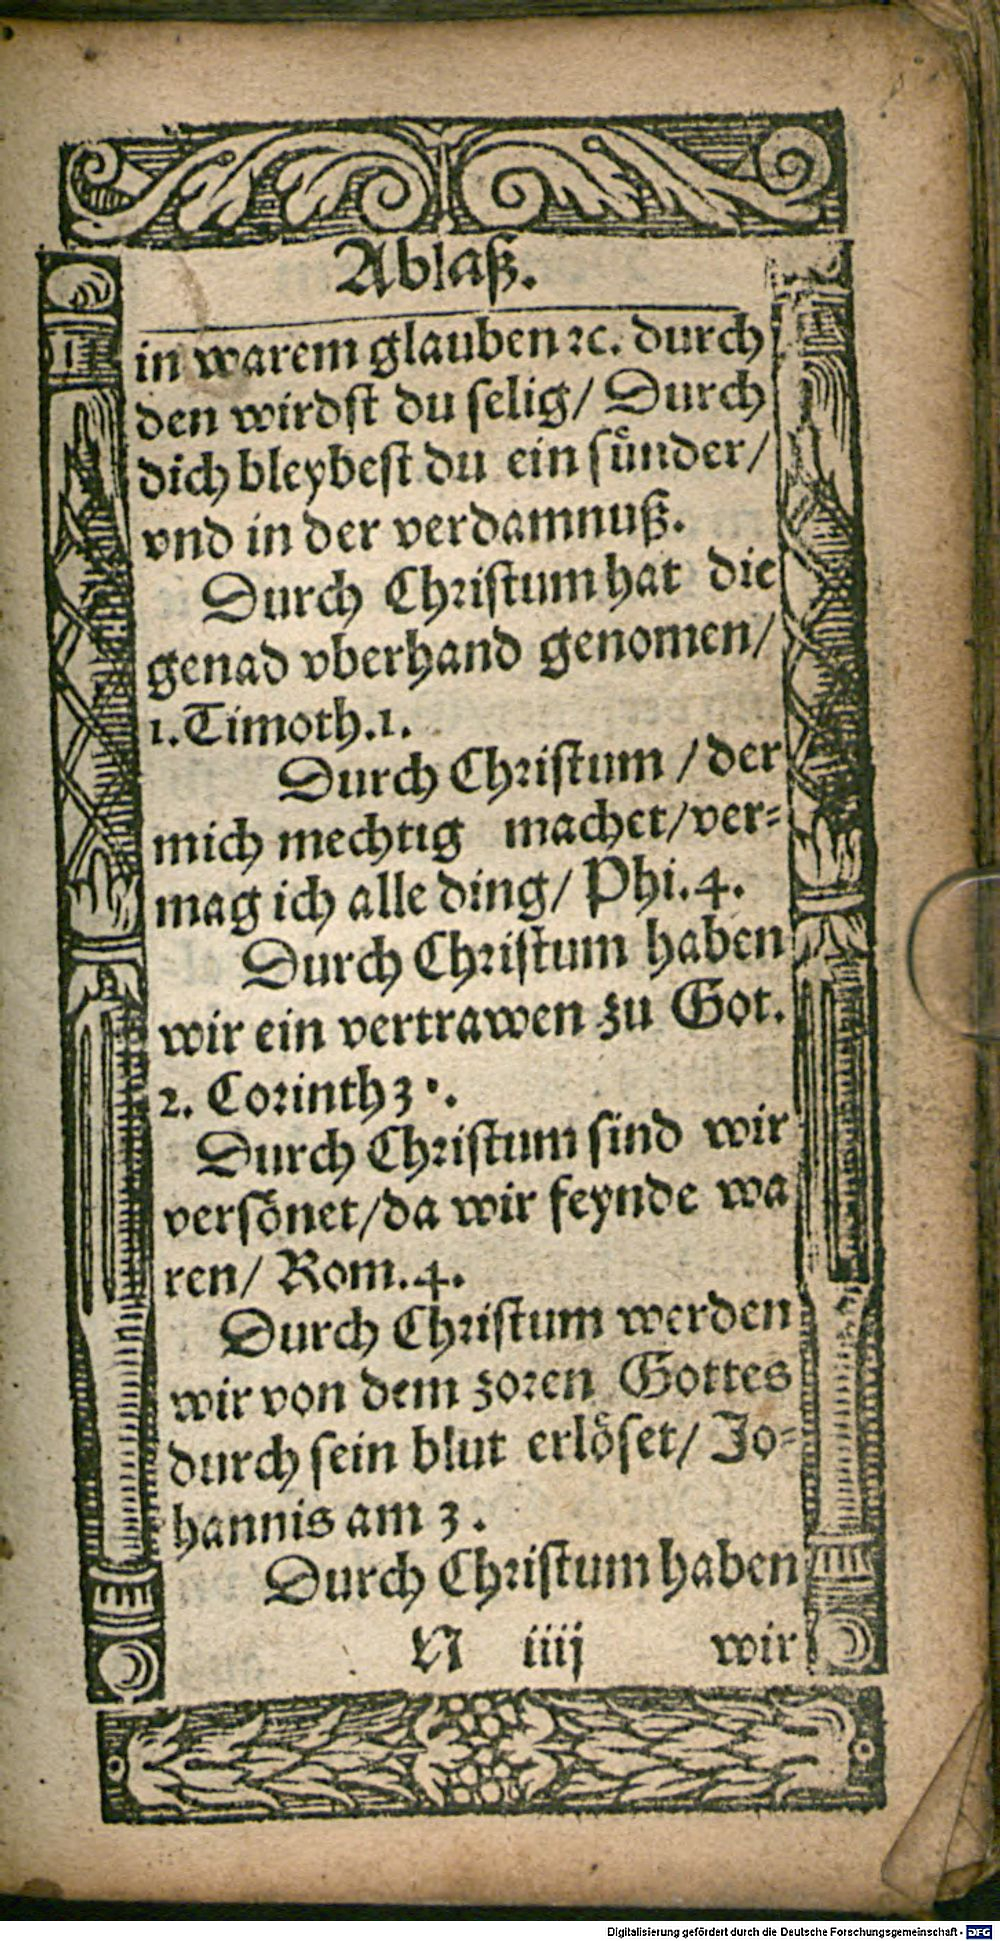 Ablaß.
in warem glauben ⁊c. durch
den wirdſt du ſelig/ Durch
dich bleybeſt du ein ſuͤnder/
vnd in der verdamnuß.
Durch Chꝛiſtum hat die
genad vberhand genomen/
1. Timoth. 1.
Durch Chꝛiſtum / der
mich mechtig machet/ ver⸗
mag ich alle ding/ Phi. 4.
Durch Chꝛiſtum haben
wir ein vertrawen zu Got.
2. Coꝛinth 3 .
Durch Chꝛiſtum ſind wir
verſoͤnet/ da wir feynde wa
ren/ Rom. 4.
Durch Chꝛiſtum werden
wir von dem zoꝛen Gottes
durch ſein blut erloͤſet/ Jo⸗
hannis am 3 .
Durch Chꝛiſtum haben
N iiij wir
Digitalisierung gefördert durch die Deutsche Forschungsgemeinschaft - DFG